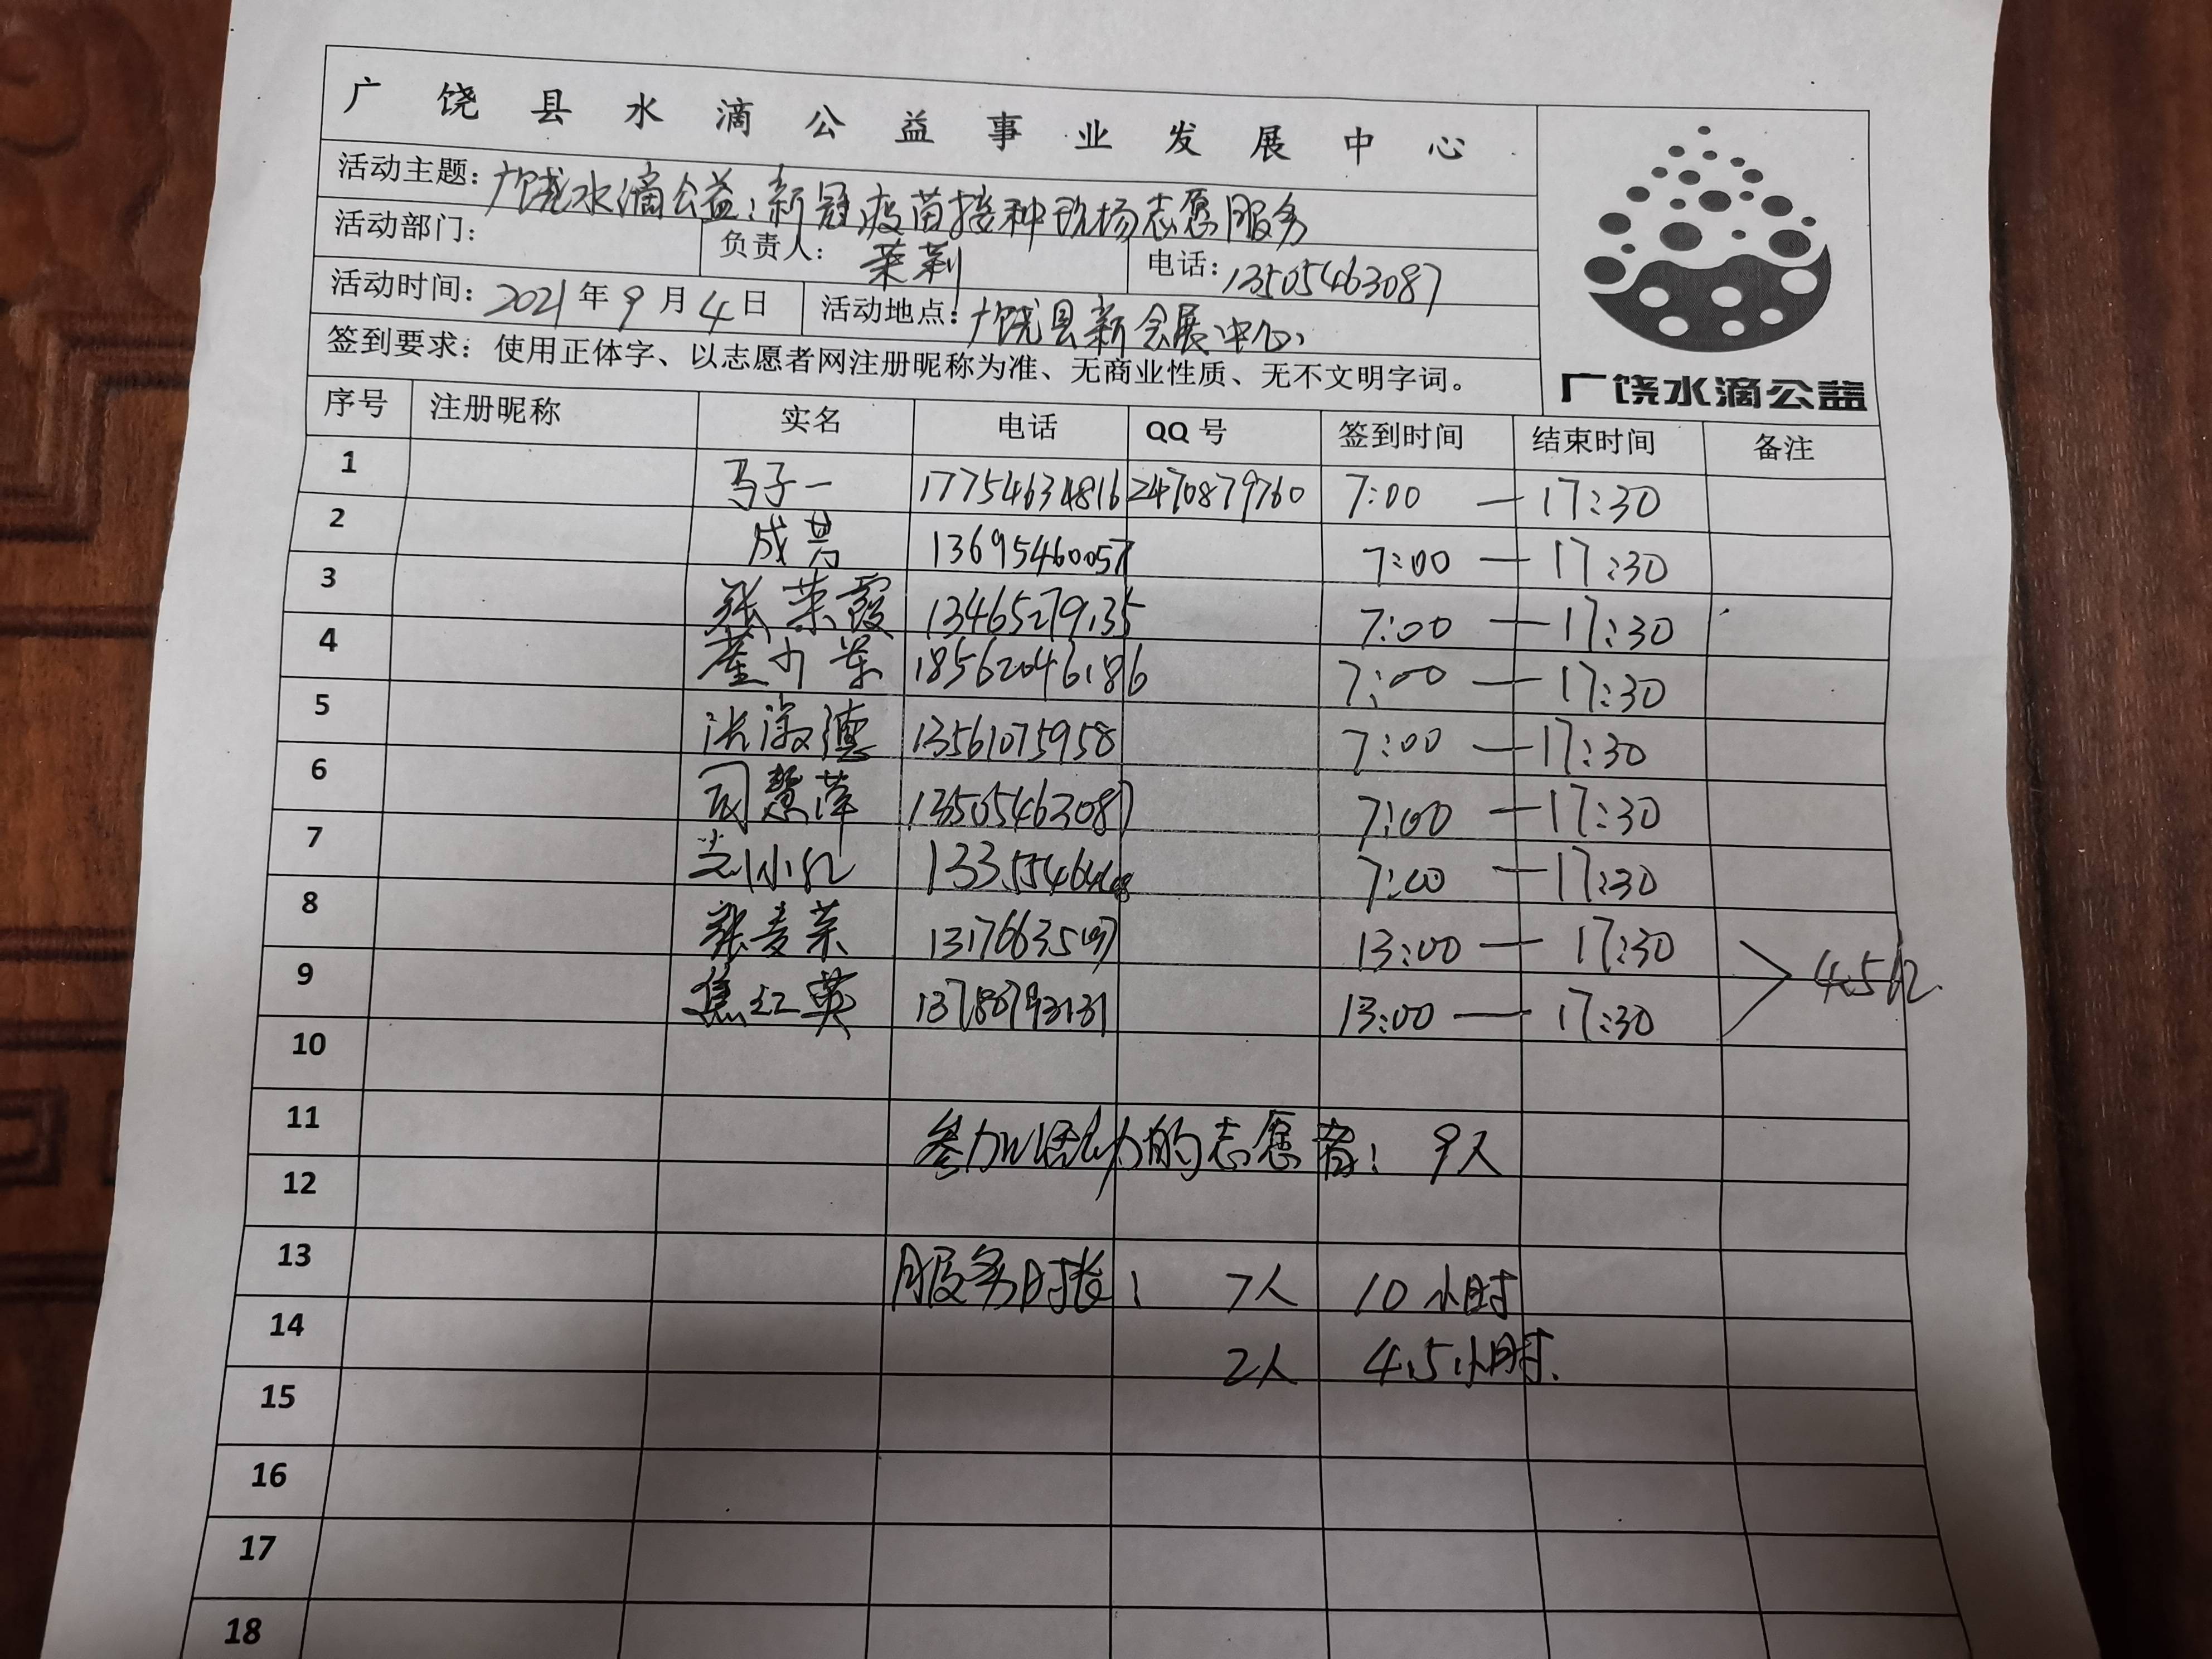 广饶县水滴公益事业发展中心
活动主题：广饶水滴公益：新冠疫苗接种现场志愿服务
活动部门： 负责人：茉莉 电话：13505463087
活动时间：2021年9月4日 活动地点：广饶县新会展中心
签到要求：使用正体字、以志愿者网注册昵称为准、无商业性质、无不文明字词。
广饶水滴公益
序号 注册昵称 实名 电话 QQ号 签到时间 结束时间 备注
1 马子一 17754634816 2470879760 7:00 — 17:30
2 13695460057 7:00 — 17:30
3 张荣霞 13465279135 7:00 — 17:30
4 18562046186 7:00 — 17:30
5 13561075958 7:00 — 17:30
6 司慧萍 13505463087 7:00 — 17:30
7 7:00 — 17:30
8 张麦荣 13:00 — 17:30
9 焦红英 13:00 — 17:30
10
11 参加活动的志愿者：9人
12
13 服务时长： 7人 10小时
14 2人 4.5小时.
15
16
17
18